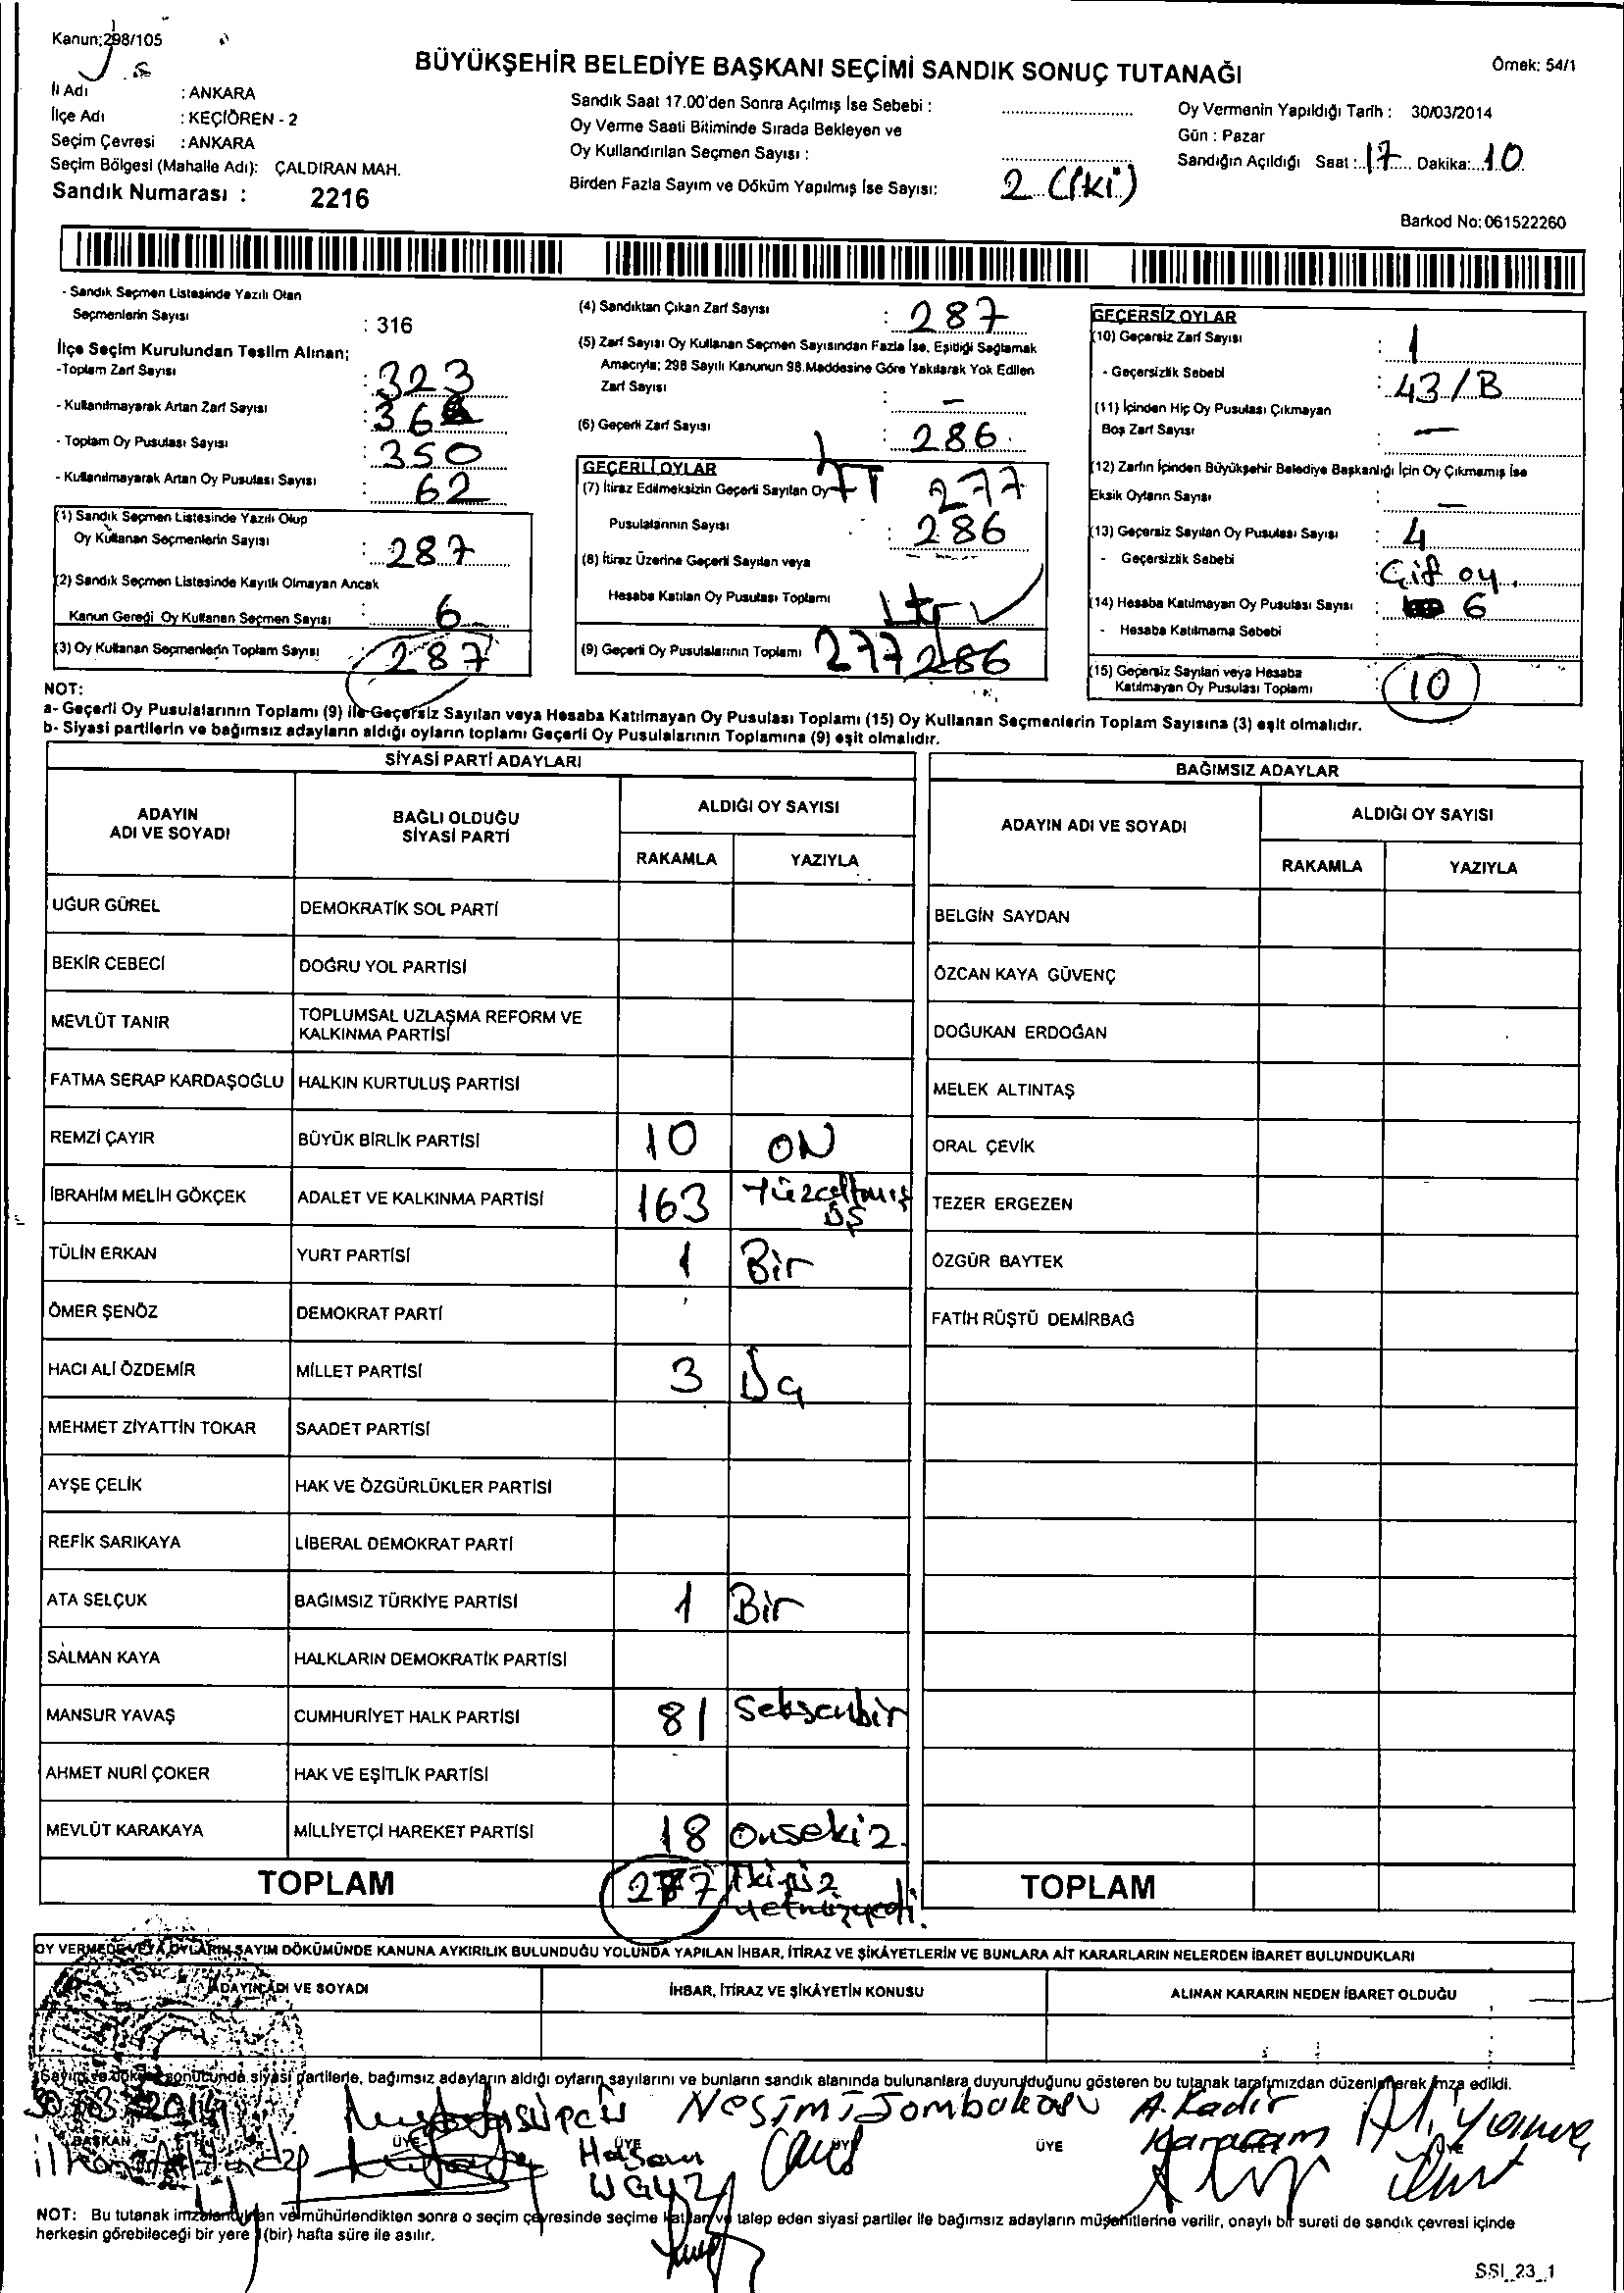 Kanun:298/105
BÜYÜKŞEHİR BELEDİYE BAŞKANI SEÇİMİ SANDIK SONUÇ TUTANAĞI
Örnek: 54/1
İl Adı : ANKARA
İlçe Adı : KEÇİÖREN - 2
Seçim Çevresi : ANKARA
Seçim Bölgesi (Mahalle Adı): ÇALDIRAN MAH.
Sandık Numarası : 2216
Sandık Saat 17.00'den Sonra Açılmış İse Sebebi :
Oy Verme Saati Bitiminde Sırada Bekleyen ve
Oy Kullandırılan Seçmen Sayısı :
Birden Fazla Sayım ve Döküm Yapılmış İse Sayısı: 2 (iki)
Oy Vermenin Yapıldığı Tarih : 30/03/2014
Gün : Pazar
Sandığın Açıldığı Saat : 17 Dakika: 10
Barkod No: 061522260
- Sandık Seçmen Listesinde Yazılı Olan
Seçmenlerin Sayısı : 316
İlçe Seçim Kurulundan Teslim Alınan;
-Toplam Zarf Sayısı : 323
- Kullanılmayarak Artan Zarf Sayısı :
- Toplam Oy Pusulası Sayısı : 350
- Kullanılmayarak Artan Oy Pusulası Sayısı : 62
(1) Sandık Seçmen Listesinde Yazılı Olup
Oy Kullanan Seçmenlerin Sayısı : 287
(2) Sandık Seçmen Listesinde Kayıtlı Olmayan Ancak
Kanun Gereği Oy Kullanan Seçmen Sayısı : 6
(3) Oy Kullanan Seçmenlerin Toplam Sayısı : 287
(4) Sandıktan Çıkan Zarf Sayısı : 287
(5) Zarf Sayısı Oy Kullanan Seçmen Sayısından Fazla İse, Eşitliği Sağlamak
Amacıyla; 298 Sayılı Kanunun 98.Maddesine Göre Yakılarak Yok Edilen
Zarf Sayısı : -
(6) Geçerli Zarf Sayısı : 286
GEÇERLİ OYLAR
(7) İtiraz Edilmeksizin Geçerli Sayılan Oy 277
Pusulalarının Sayısı : 286
(8) İtiraz Üzerine Geçerli Sayılan veya
Hesaba Katılan Oy Pusulası Toplamı
(9) Geçerli Oy Pusulalarının Toplamı 277 286
GEÇERSİZ OYLAR
(10) Geçersiz Zarf Sayısı : 1
- Geçersizlik Sebebi : 43/B
(11) İçinden Hiç Oy Pusulası Çıkmayan
Boş Zarf Sayısı : -
(12) Zarfın İçinden Büyükşehir Belediye Başkanlığı İçin Oy Çıkmamış İse
Eksik Oyların Sayısı : -
(13) Geçersiz Sayılan Oy Pusulası Sayısı : 4
- Geçersizlik Sebebi : Çift oy.
(14) Hesaba Katılmayan Oy Pusulası Sayısı : 6
- Hesaba Katılmama Sebebi :
(15) Geçersiz Sayılan veya Hesaba
Katılmayan Oy Pusulası Toplamı : 10
NOT:
a- Geçerli Oy Pusulalarının Toplamı (9) ile Geçersiz Sayılan veya Hesaba Katılmayan Oy Pusulası Toplamı (15) Oy Kullanan Seçmenlerin Toplam Sayısına (3) eşit olmalıdır.
b- Siyasi partilerin ve bağımsız adayların aldığı oyların toplamı Geçerli Oy Pusulalarının Toplamına (9) eşit olmalıdır.
SİYASİ PARTİ ADAYLARI
ADAYIN ADI VE SOYADI BAĞLI OLDUĞU SİYASİ PARTİ ALDIĞI OY SAYISI
RAKAMLA YAZIYLA
UĞUR GÜREL DEMOKRATİK SOL PARTİ
BEKİR CEBECİ DOĞRU YOL PARTİSİ
MEVLÜT TANIR TOPLUMSAL UZLAŞMA REFORM VE
KALKINMA PARTİSİ
FATMA SERAP KARDAŞOĞLU HALKIN KURTULUŞ PARTİSİ
REMZİ ÇAYIR BÜYÜK BİRLİK PARTİSİ 10 ON
İBRAHİM MELİH GÖKÇEK ADALET VE KALKINMA PARTİSİ 163 Yüzaltmış
üç
TÜLİN ERKAN YURT PARTİSİ 1 Bir
ÖMER ŞENÖZ DEMOKRAT PARTİ
HACI ALİ ÖZDEMİR MİLLET PARTİSİ 3 Üç
MEHMET ZİYATTİN TOKAR SAADET PARTİSİ
AYŞE ÇELİK HAK VE ÖZGÜRLÜKLER PARTİSİ
REFİK SARIKAYA LİBERAL DEMOKRAT PARTİ
ATA SELÇUK BAĞIMSIZ TÜRKİYE PARTİSİ 1 Bir
SALMAN KAYA HALKLARIN DEMOKRATİK PARTİSİ
MANSUR YAVAŞ CUMHURİYET HALK PARTİSİ 81 Seksenbir
AHMET NURİ ÇOKER HAK VE EŞİTLİK PARTİSİ
MEVLÜT KARAKAYA MİLLİYETÇİ HAREKET PARTİSİ 18 Onsekiz
TOPLAM 277 İkiyüz
yetmişyedi
BAĞIMSIZ ADAYLAR
ADAYIN ADI VE SOYADI ALDIĞI OY SAYISI
RAKAMLA YAZIYLA
BELGİN SAYDAN
ÖZCAN KAYA GÜVENÇ
DOĞUKAN ERDOĞAN
MELEK ALTINTAŞ
ORAL ÇEVİK
TEZER ERGEZEN
ÖZGÜR BAYTEK
FATİH RÜŞTÜ DEMİRBAĞ
TOPLAM
OY VERMEDE VEYA OYLARIN SAYIM DÖKÜMÜNDE KANUNA AYKIRILIK BULUNDUĞU YOLUNDA YAPILAN İHBAR, İTİRAZ VE ŞİKÂYETLERİN VE BUNLARA AİT KARARLARIN NELERDEN İBARET BULUNDUKLARI
ADAYIN ADI VE SOYADI İHBAR, İTİRAZ VE ŞİKÂYETİN KONUSU ALINAN KARARIN NEDEN İBARET OLDUĞU
Sayım ve döküm sonucunda siyasi partilerle, bağımsız adayların aldığı oyların sayılarını ve bunların sandık alanında bulunanlara duyurulduğunu gösteren bu tutanak tarafımızdan düzenlenerek imza edildi.
30.03.2014
Nesimi A.Kadir
BAŞKAN ÜYE ÜYE ÜYE ÜYE
Hasan Karaçam
NOT: Bu tutanak imzalandıktan ve mühürlendikten sonra o seçim çevresinde seçime katılan ve talep eden siyasi partiler ile bağımsız adayların müşahitlerine verilir, onaylı bir sureti de sandık çevresi içinde
herkesin görebileceği bir yere 1 (bir) hafta süre ile asılır.
SSI_23_1